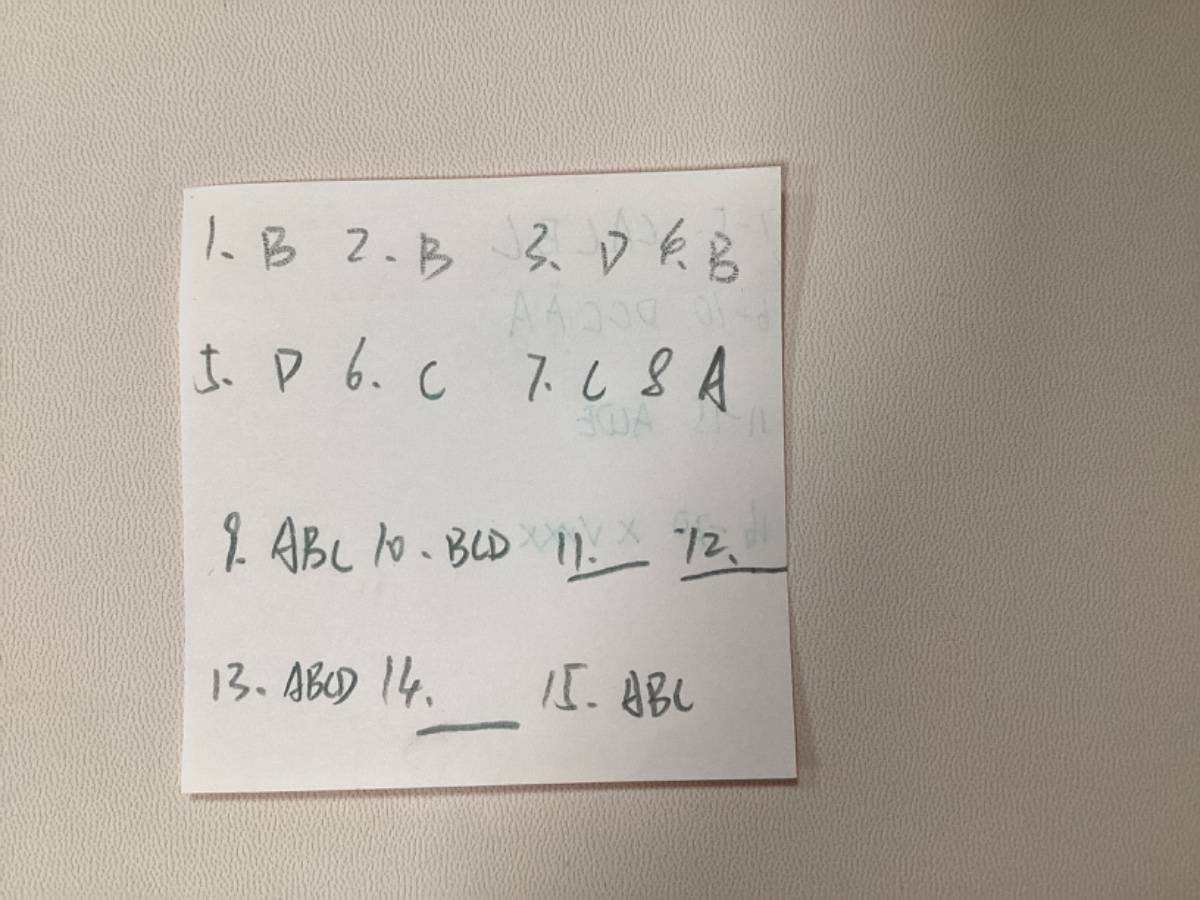 1. B 2. B 3. D 6. B
5. D 6. C 7. C 8 A
9. ABC 10. BCD 11. 12.
13. ABCD 14. 15. ABC